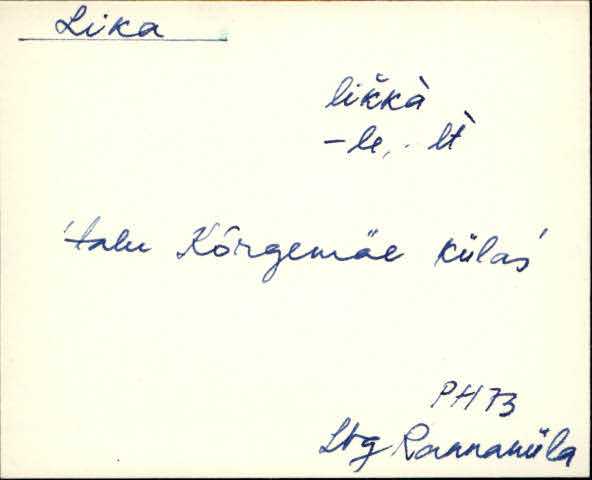 Lika
lik̆kà
-le, . lt̀
'talu Kõrgemäe külas'
PH 73
Ltg Rannaküla